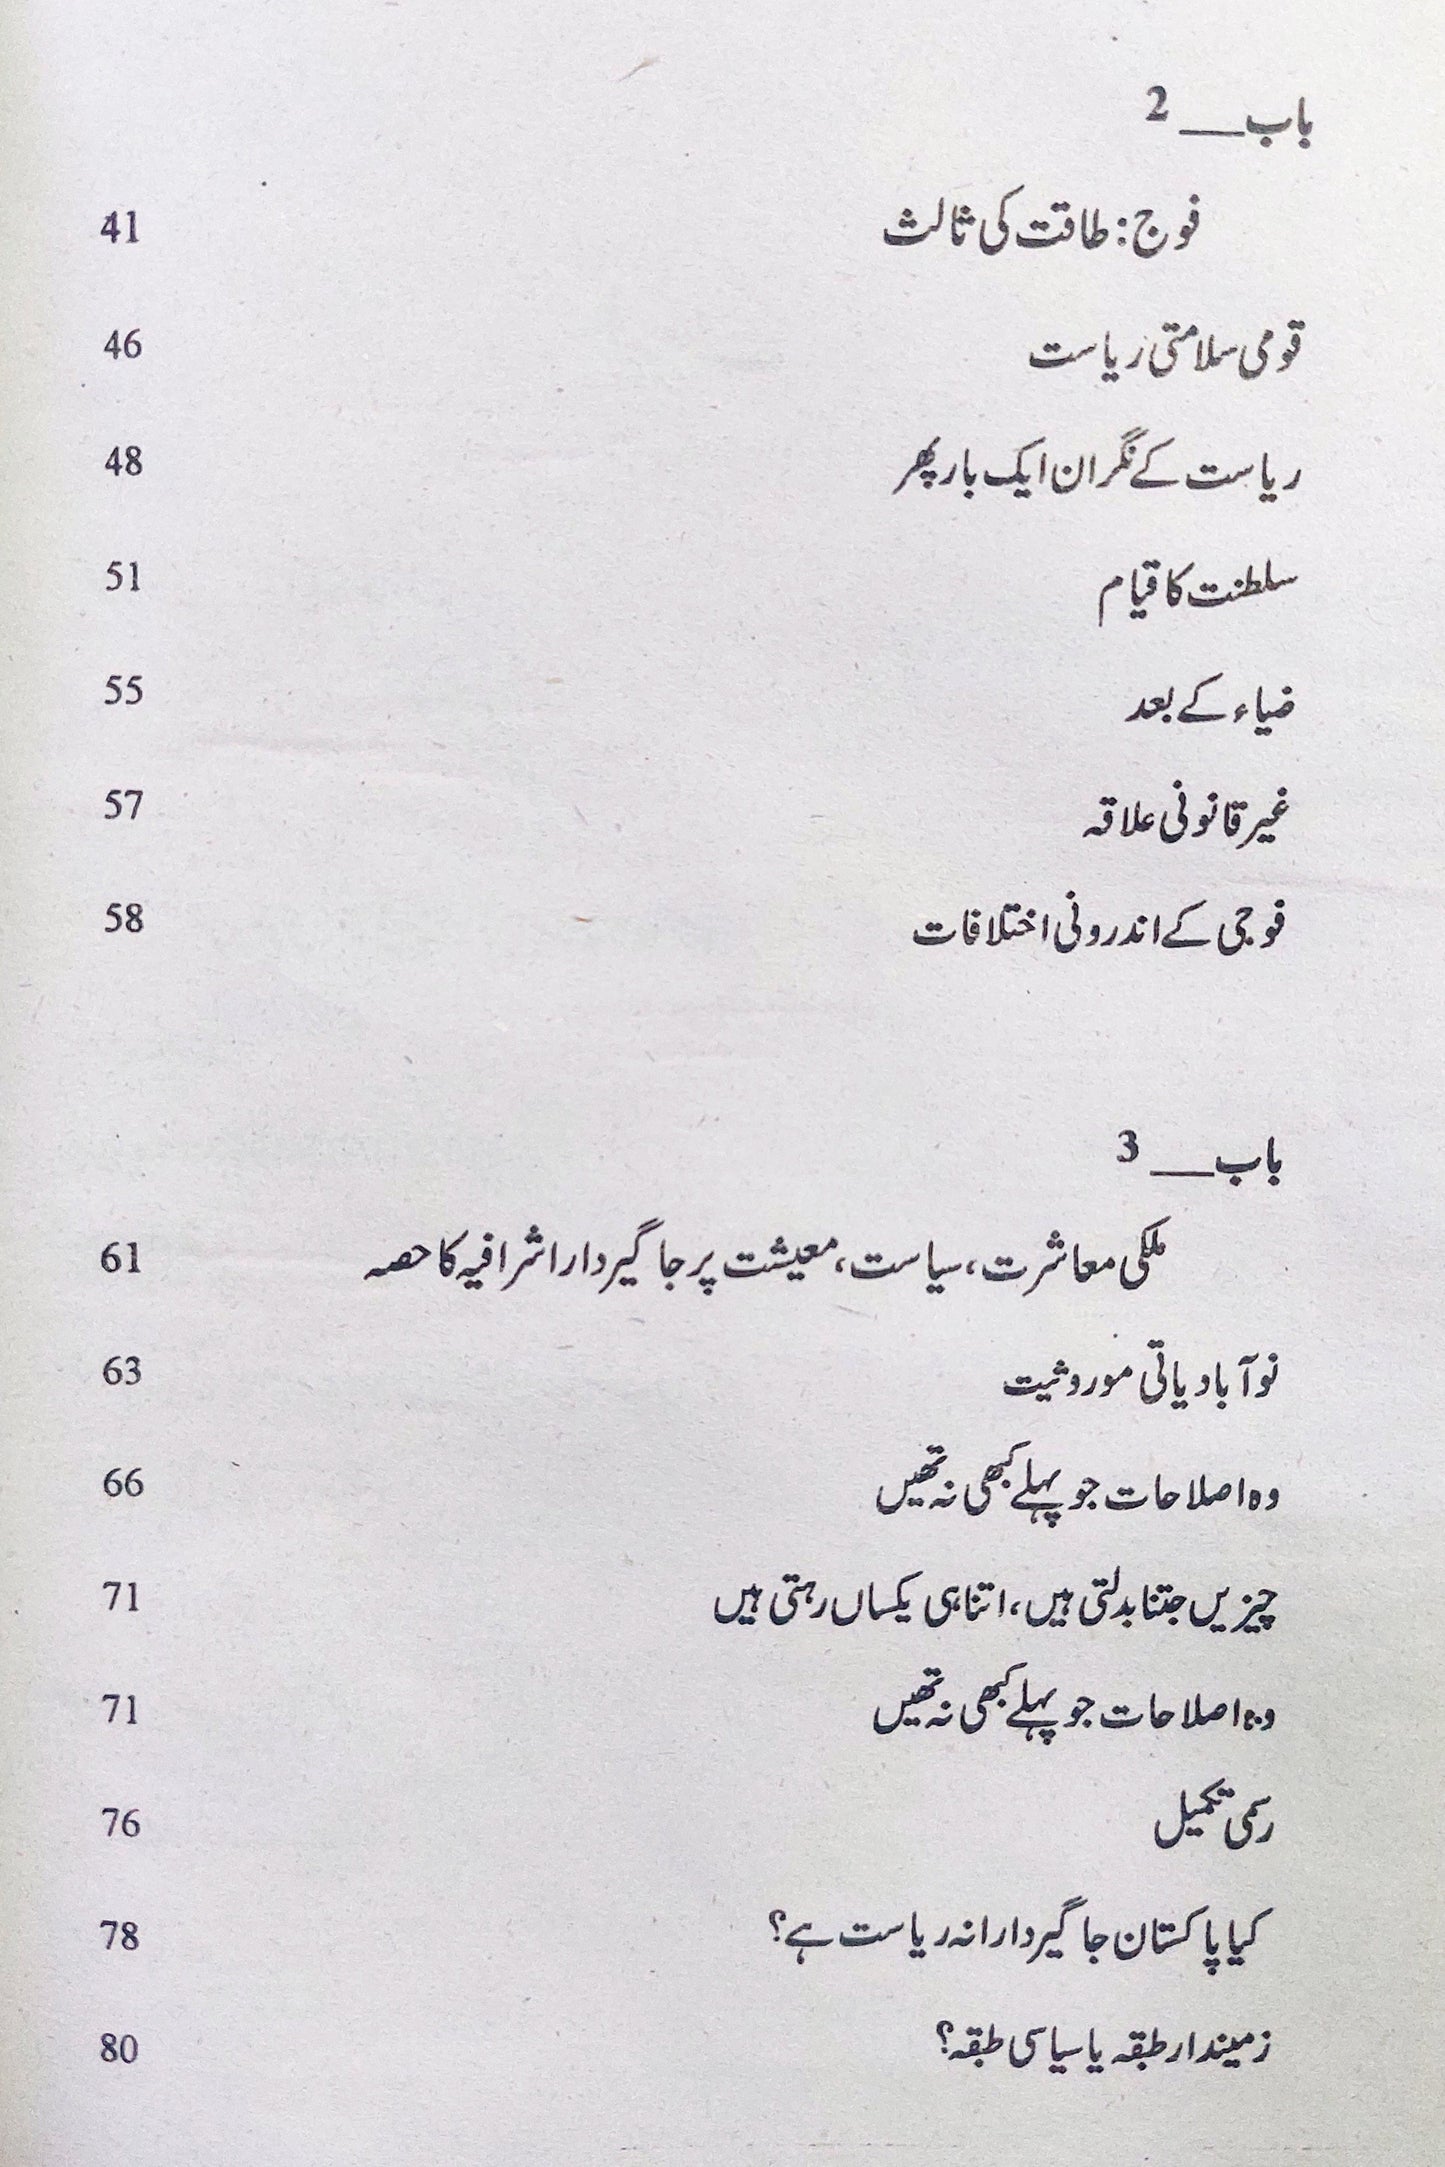 باب__ 2
فوج: طاقت کی ثالث 41
قومی سلامتی ریاست 46
ریاست کے نگران ایک بار پھر 48
سلطنت کا قیام 51
ضیاء کے بعد 55
غیر قانونی علاقہ 57
فوجی کے اندرونی اختلافات 58
باب__ 3
ملکی معاشرت، سیاست، معیشت پر جاگیردار اشرافیہ کا حصہ 61
نوآبادیاتی موروثیت 63
وہ اصلاحات جو پہلے کبھی نہ تھیں 66
چیزیں جتنا بدلتی ہیں، اتنا ہی یکساں رہتی ہیں 71
وہ اصلاحات جو پہلے کبھی نہ تھیں 71
رسمی تکمیل 76
کیا پاکستان جاگیردارانہ ریاست ہے؟ 78
زمیندار طبقہ یا سیاسی طبقہ؟ 80